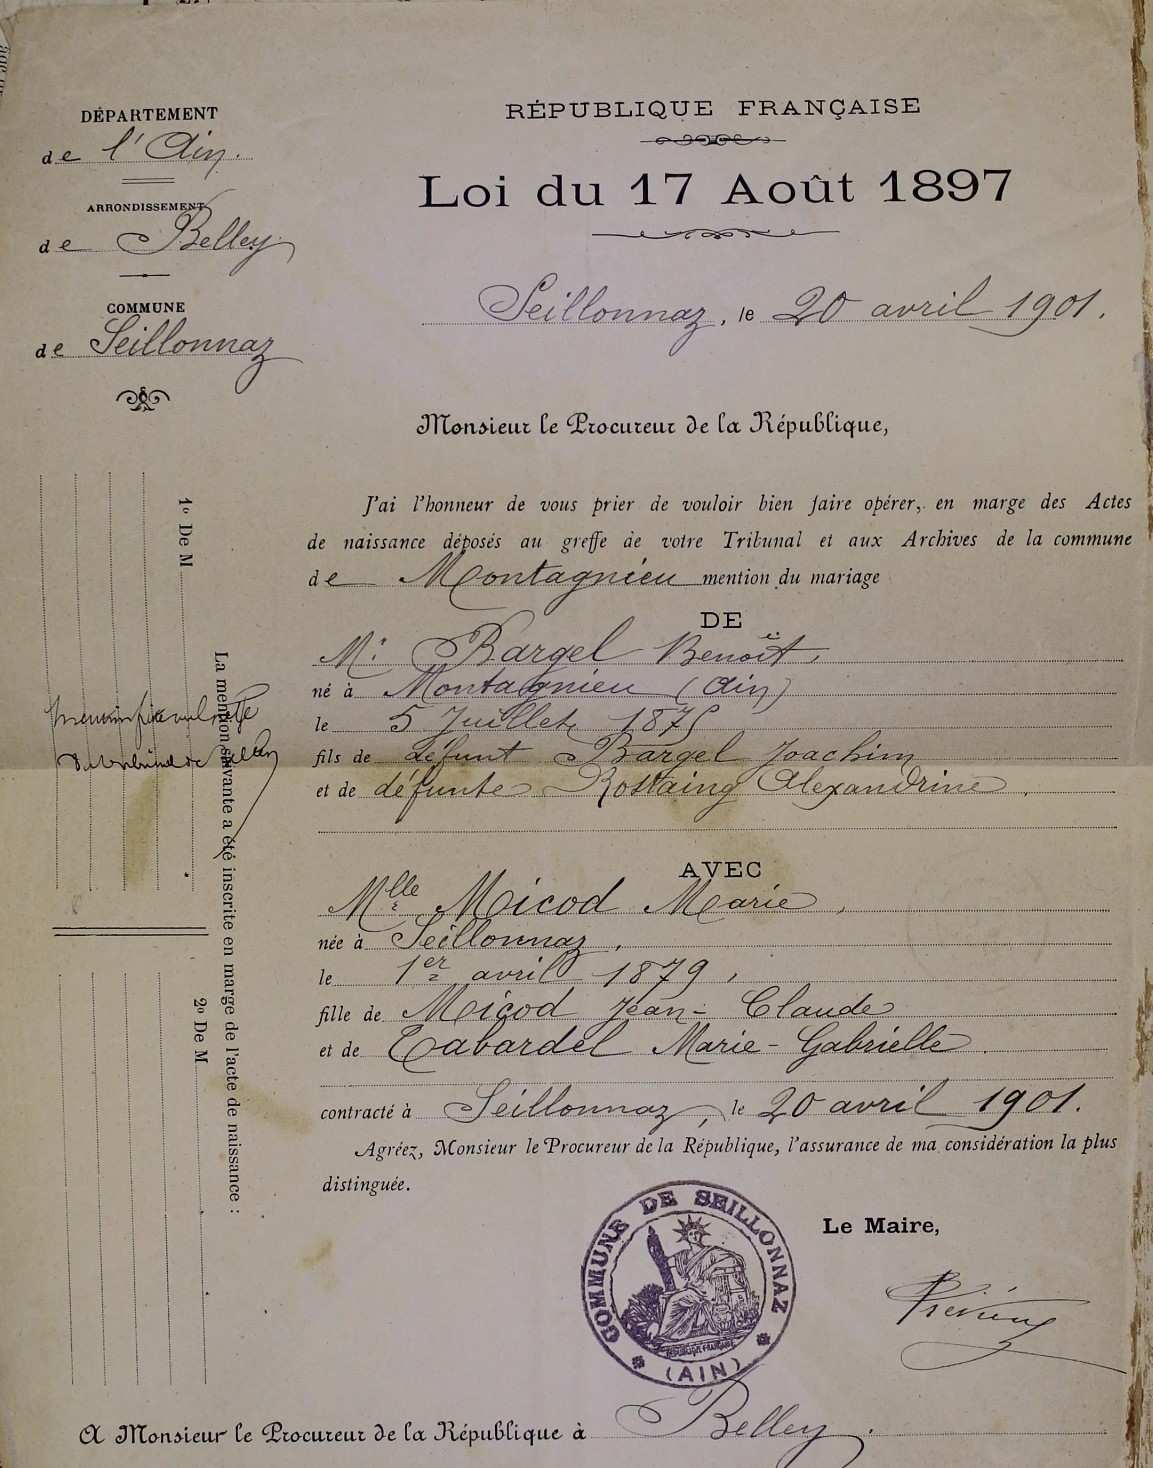 DÉPARTEMENT
de l'Ain.
ARRONDISSEMENT
de Belley
COMMUNE
de Seillonnaz
RÉPUBLIQUE FRANÇAISE
Loi du 17 Août 1897
Seillonnaz, le 20 avril 1901.
Monsieur le Procureur de la République,
J'ai l'honneur de vous prier de vouloir bien faire opérer, en marge des Actes
de naissance déposés au greffe de votre Tribunal et aux Archives de la commune
de Montagnieu mention du mariage
DE
Mr Bargel Benoît,
né à Montagnieu (Ain)
le 5 Juillet 1875
fils de défunt Bargel Joachim
et de défunte Rostaing Alexandrine.
AVEC
Mlle Micod Marie,
née à Seillonnaz,
le 1er avril 1879,
fille de Micod Jean-Claude
et de Tabardel Marie-Gabrielle.
contracté à Seillonnaz, le 20 avril 1901.
Agréez, Monsieur le Procureur de la République, l'assurance de ma considération la plus
distinguée.
Le Maire,
COMMUNE DE SEILLONNAZ
RÉPUBLIQUE FRANÇAISE
(AIN)
A Monsieur le Procureur de la République à Belley.
La mention suivante a été inscrite en marge de l'acte de naissance :
1o De M
2o De M